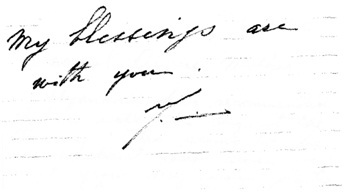 My blessings are
with you.